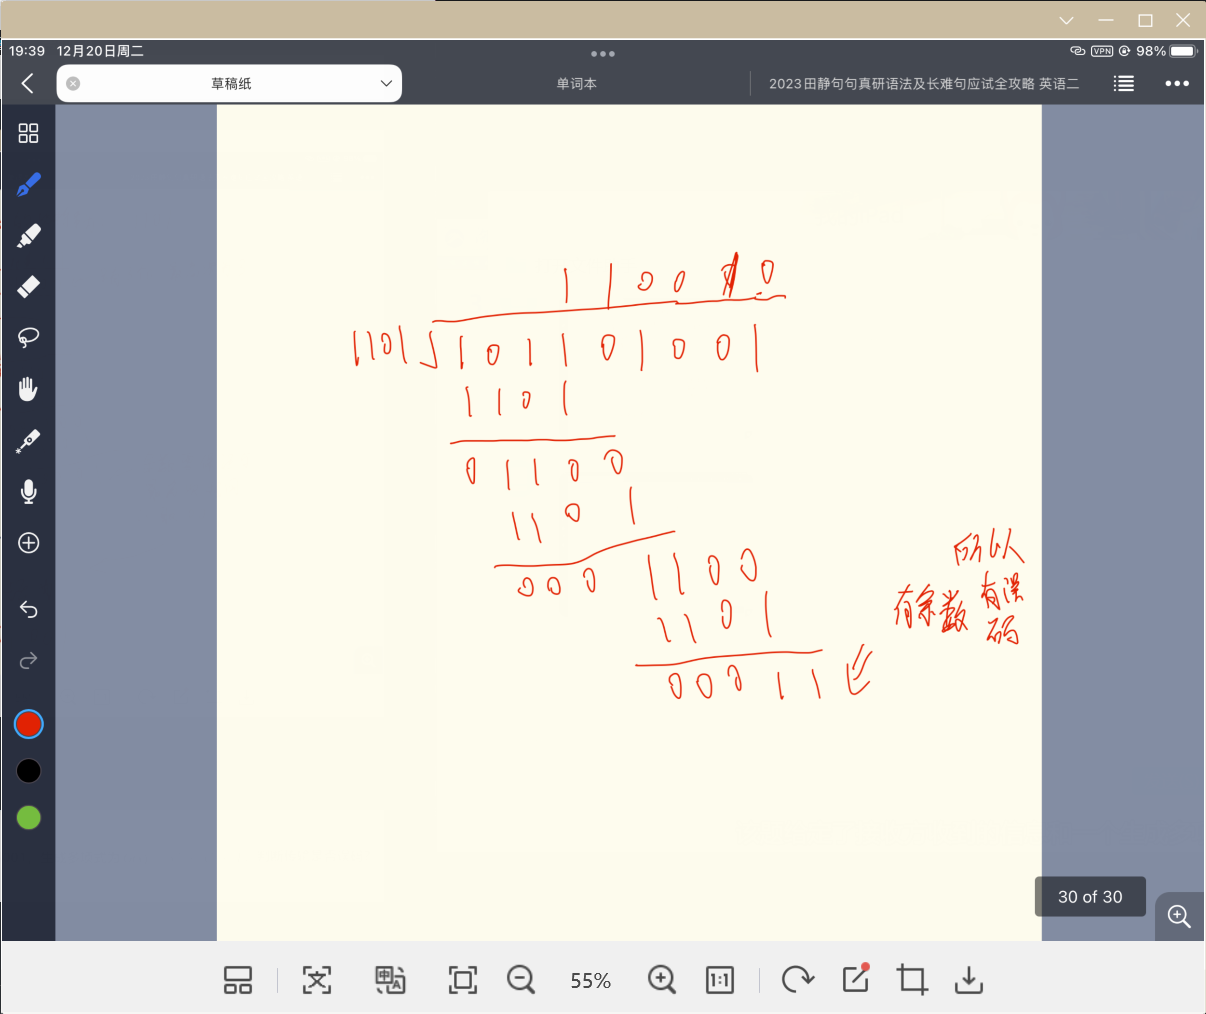 19:39 12月20日周二
VPN 98%
草稿纸
单词本
2023田静句句真研语法及长难句应试全攻略 英语二
1 1 0 0 1 0
1101 1 0 1 1 0 1 0 0 1
1 1 0 1
0 1 1 0 0
1 1 0 1
0 0 0 1 1 0 0
1 1 0 1
0 0 0 1 1
所以
有余数 有误
码
30 of 30
55%
1:1